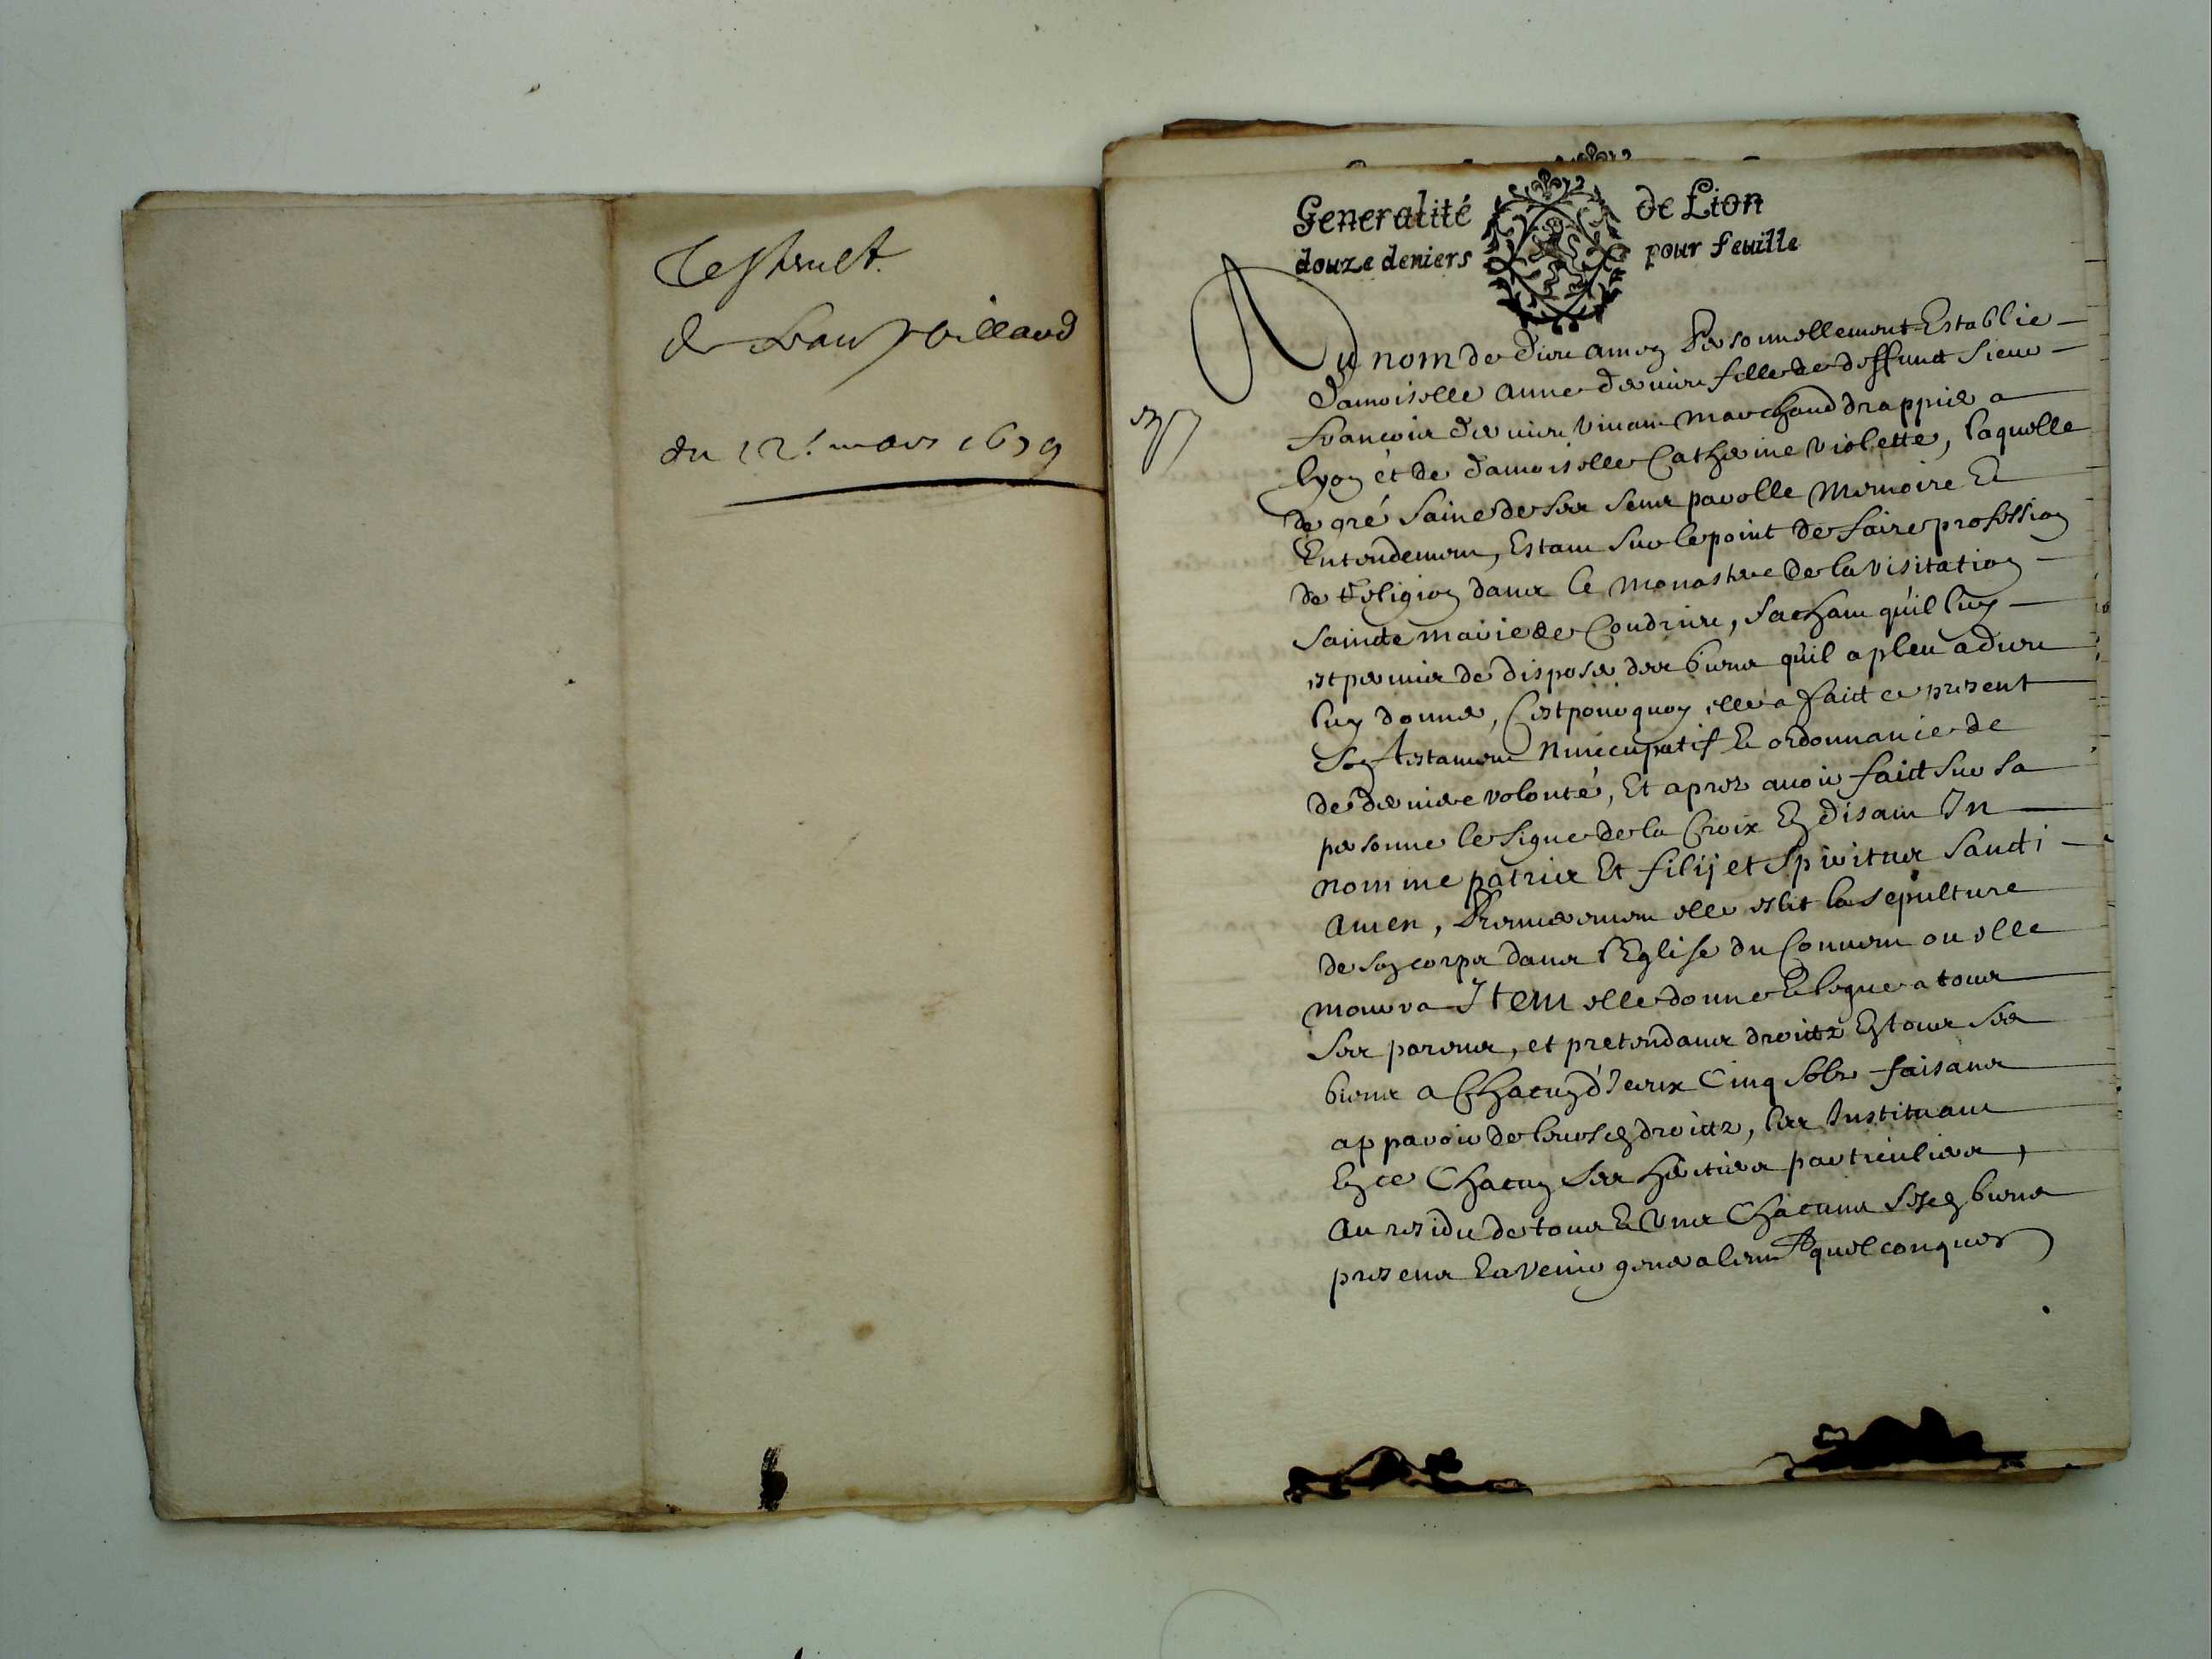 Testament
de
du 12.e mars 1679
Generalité de Lion
douze deniers pour feuille
Au nom de Dieu amen Personnellement Establie
Damoiselle Anne fille de deffunct Sieur
francois vivant marchand drappier a
lyon et de Damoiselle Catherine Violette, laquelle
de gré saine de ses sens parolle memoire Et
Entendement, Estant sur le point de faire profession
de Religion dans le monastere de la visitation
saincte marie de Condrieu, sachant qu'il luy
est permis de disposer des biens qu'il a pleu a dieu
luy donner, C'est pourquoy elle a faict ce present
son testament nuncupatif Et ordonnance de
de derniere volonté, Et aprez avoir faict sur sa
personne le signe de la Croix En disant In
nomine patris Et filij et spiritus sancti
amen, Premierement elle eslit la sepulture
de son corps dans l'Eglise du Couvent ou elle
mourra Item elle donne Et legue a tous
ses parens, et pretendans droictz En tous ses
biens a Chacun d'Iceux Cinq solz faisans
apparoir de leursd droictz, les Instituant
En ce Chacun ses heritiers particuliers,
Au residu de tous Et Uns Chacuns sesd biens
presens Et avenir generalement quelconques